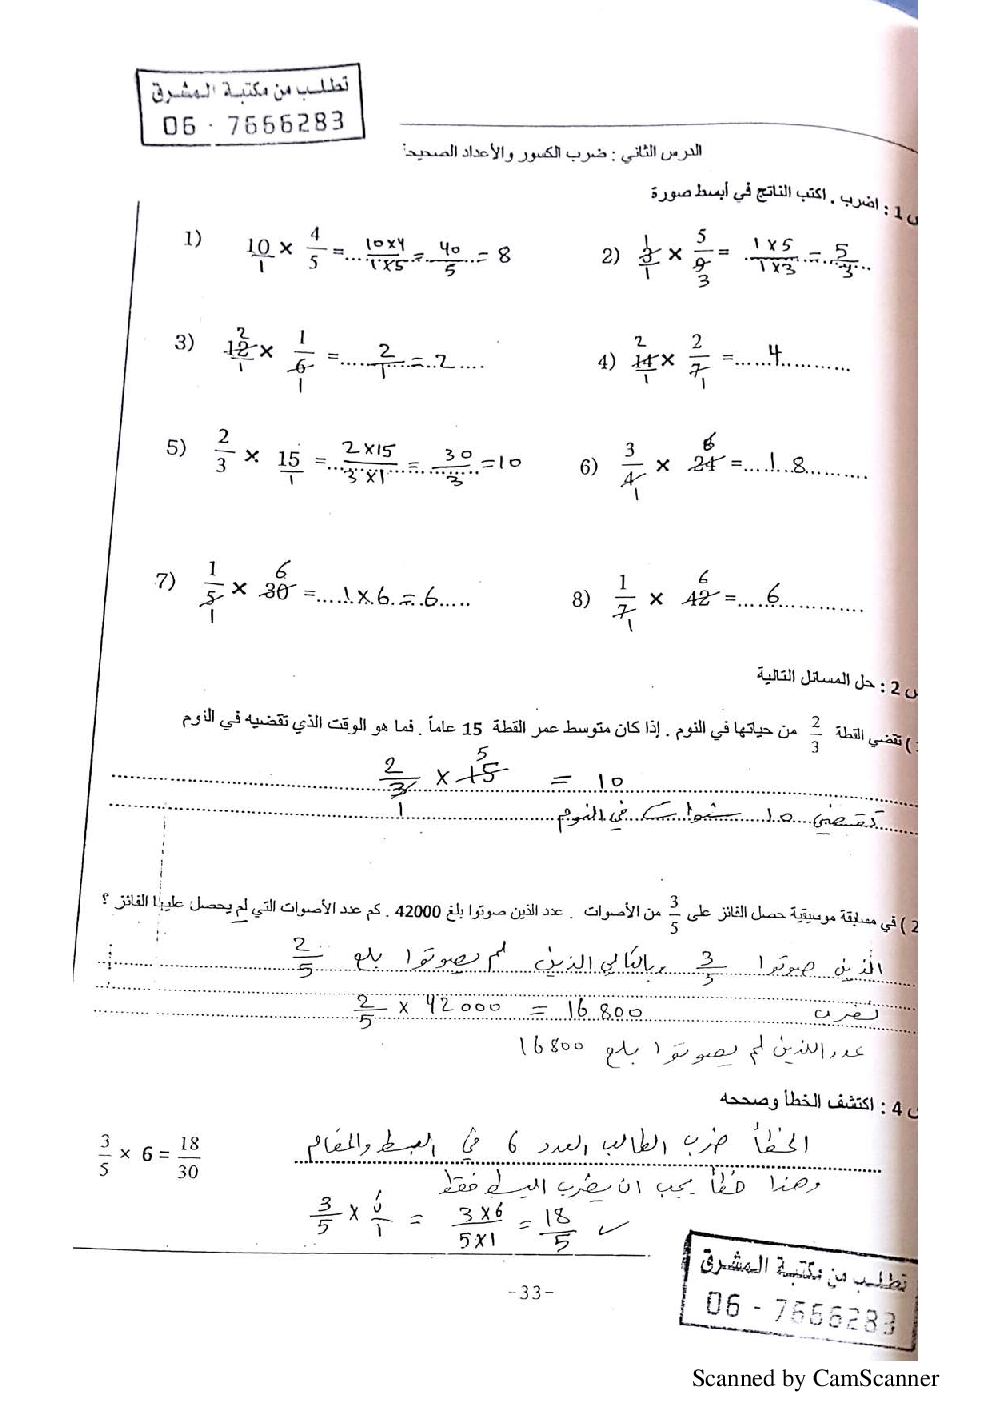 تطلب من مكتبة المشرق
06 - 7666283
الدرس الثاني : ضرب الكسور والأعداد الصحيحة
س 1 : اضرب . اكتب الناتج في أبسط صورة
1) 10/1 × 4/5 = 10×4/1×5 = 40/5 = 8
2) 3/1 × 5/9 = 1×5/1×3 = 5/3
3) 12/1 × 1/6 = 2/1 = 2
4) 14/1 × 2/7 = 4
5) 2/3 × 15/1 = 2×15/3×1 = 30/3 = 10
6) 3/4 × 24 = 18
7) 1/5 × 30 = 1×6 = 6
8) 1/7 × 42 = 6
س 2 : حل المسائل التالية
1 ) تقضي القطة 2/3 من حياتها في النوم . إذا كان متوسط عمر القطة 15 عاماً . فما هو الوقت الذي تقضيه في النوم
2/3 × 15 = 10
تقضي 10 سنوات في النوم
2 ) في مسابقة موسيقية حصل الفائز على 3/5 من الأصوات . عدد الذين صوتوا بلغ 42000 . كم عدد الأصوات التي لم يحصل عليها الفائز ؟
الذين صوتوا 3/5 وبالتالي الذين لم يصوتوا بلغ 2/5
2/5 × 42000 = 16800
عدد اللذين لم يصوتوا بلغ 16800
س 4 : اكتشف الخطأ وصححه
3/5 × 6 = 18/30
الخطأ ضرب الطالب العدد 6 في البسط والمقام
وهذا خطأ يجب ان يضرب البسط فقط
3/5 × 6/1 = 3×6/5×1 = 18/5 ✓
-33-
تطلب من مكتبة المشرق
06 - 7666283
Scanned by CamScanner